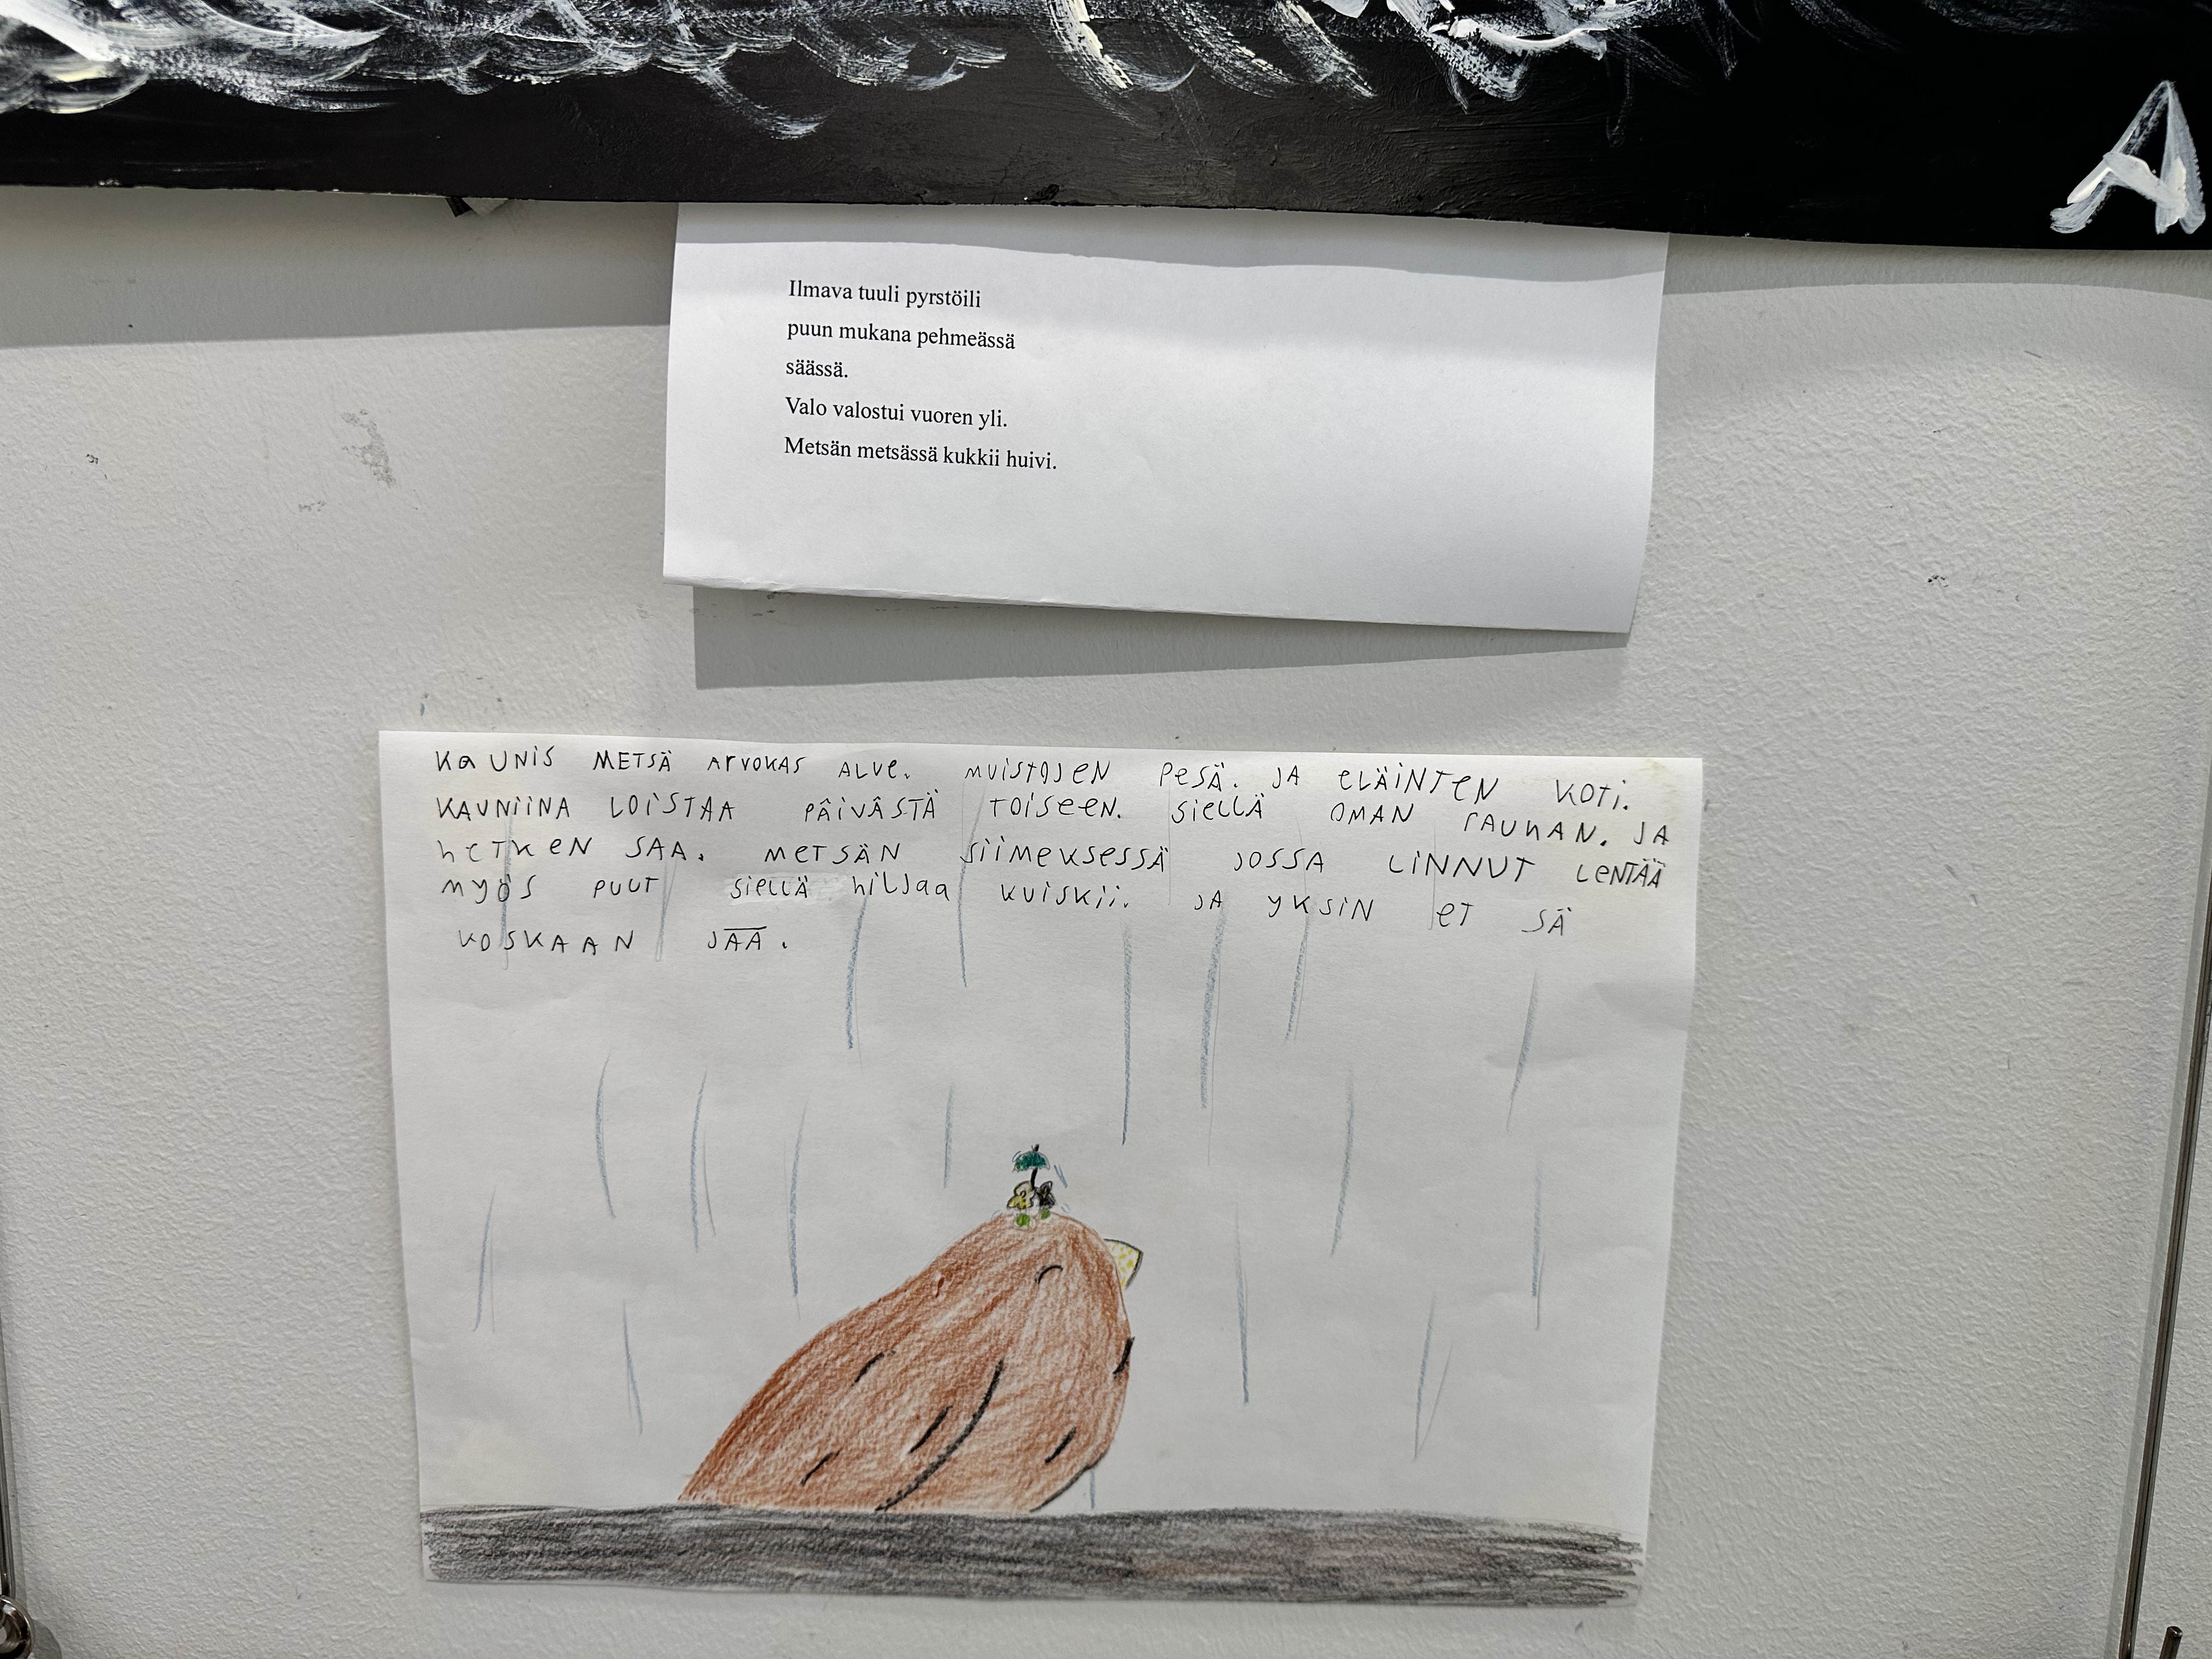 A
Ilmava tuuli pyrstöili
puun mukana pehmeässä
säässä.
Valo valostui vuoren yli.
Metsän metsässä kukkii huivi.
KaUNiS METSÄ ArVOKAS ALVe. MUiSTOJEN PeSÄ. JA eLÄiNTeN KOTi.
KAUNiiNA LOiSTAA PÄiVÄSTÄ TOiSeeN. SieLLÄ OMAN rAUhAN. JA
heTKeN SAA. MeTSÄN SiiMeKSeSSÄ JOSSA LiNNUT LeNTÄÄ
MYÖS PUUT SieLLÄ hiLJaa KUiSKii. JA YKSiN eT SÄ
KOSKAAN JÄÄ.